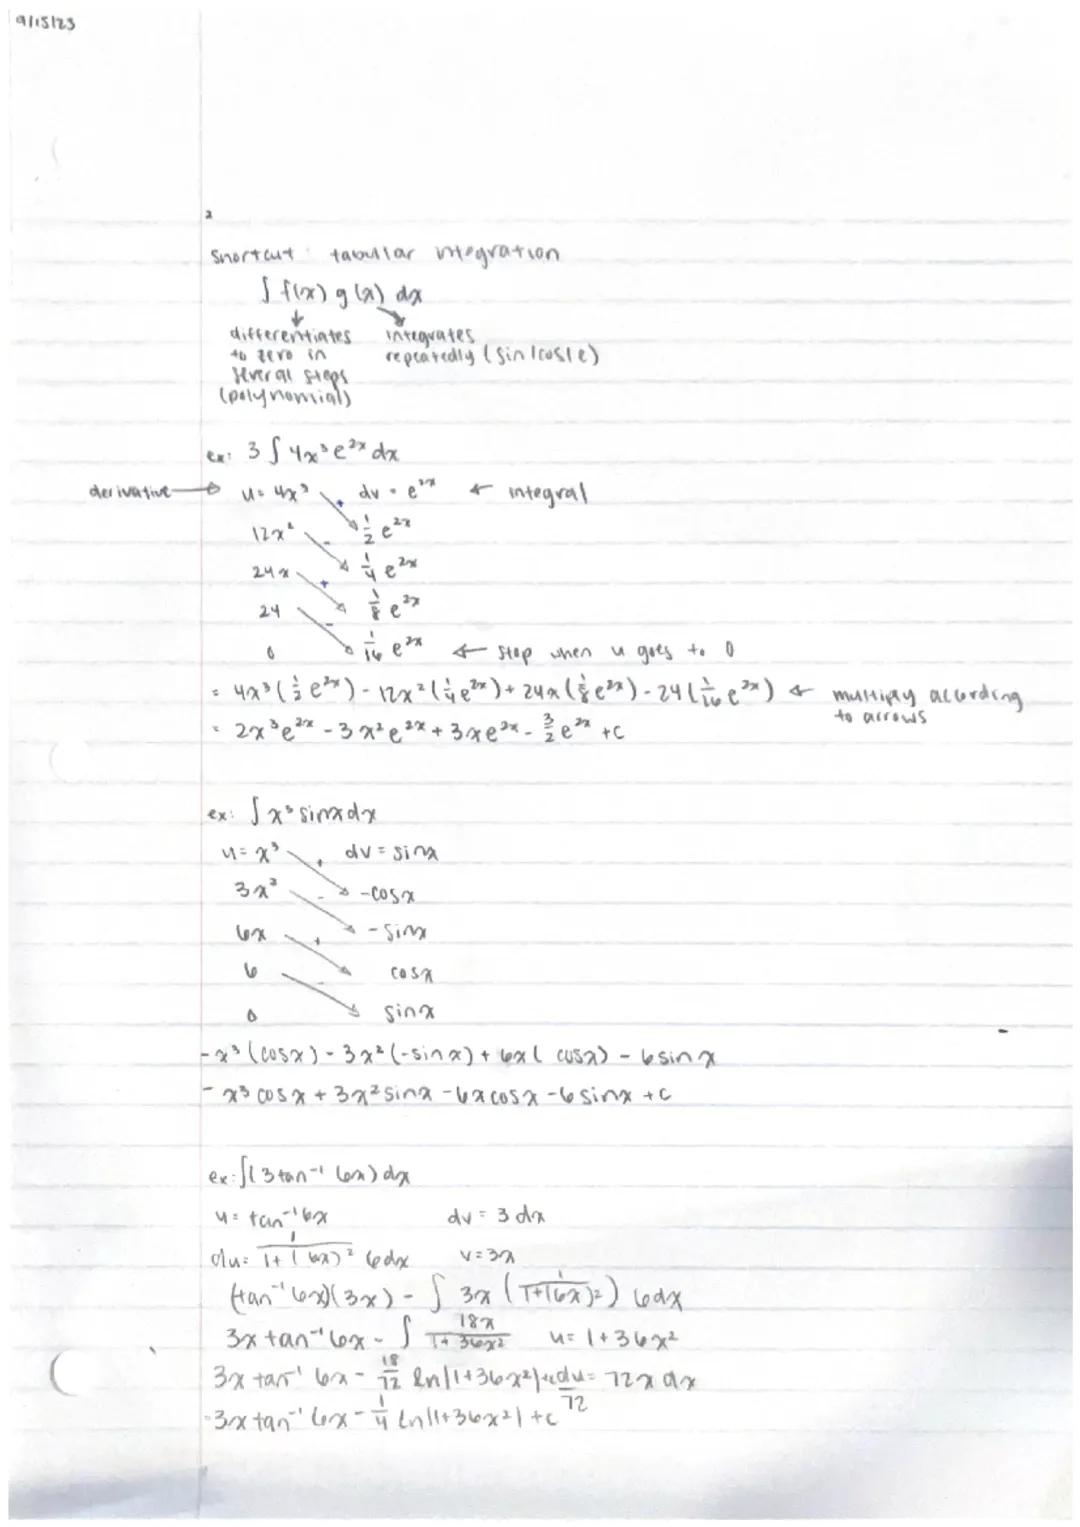 9/15/23
2
shortcut: tabular integration
∫ f(x) g(x) dx
differentiates to zero in several steps (polynomial)
integrates repeatedly (sin/cos/e)
ex: 3 ∫ 4x³ e²ˣ dx
derivative → u = 4x³ + dv = e²ˣ ← integral
12x² - ½ e²ˣ
24x + ¼ e²ˣ
24 - ⅛ e²ˣ
0 1/16 e²ˣ ← stop when u goes to 0
= 4x³(½ e²ˣ) - 12x²(¼ e²ˣ) + 24x(⅛ e²ˣ) - 24(1/16 e²ˣ) ← multiply according to arrows
= 2x³e²ˣ - 3x²e²ˣ + 3xe²ˣ - 3/2 e²ˣ + c
ex: ∫ x³ sinx dx
u = x³ + dv = sinx
3x² - -cosx
6x + -sinx
6 - cosx
0 sinx
-x³(cosx) - 3x²(-sinx) + 6x(cosx) - 6sinx
-x³cosx + 3x²sinx - 6xcosx - 6sinx + c
ex: ∫(3tan⁻¹ 6x) dx
u = tan⁻¹6x dv = 3 dx
du = 1/(1+(6x)²) 6dx v = 3x
(tan⁻¹6x)(3x) - ∫ 3x (1/(1+(6x)²)) 6dx
3x tan⁻¹6x - ∫ 18x/(1+36x²) u = 1+36x²
3x tan⁻¹ 6x - 18/72 ln|1+36x²|+c du = 72x dx
72
=3x tan⁻¹ 6x - ¼ ln|1+36x²| + c